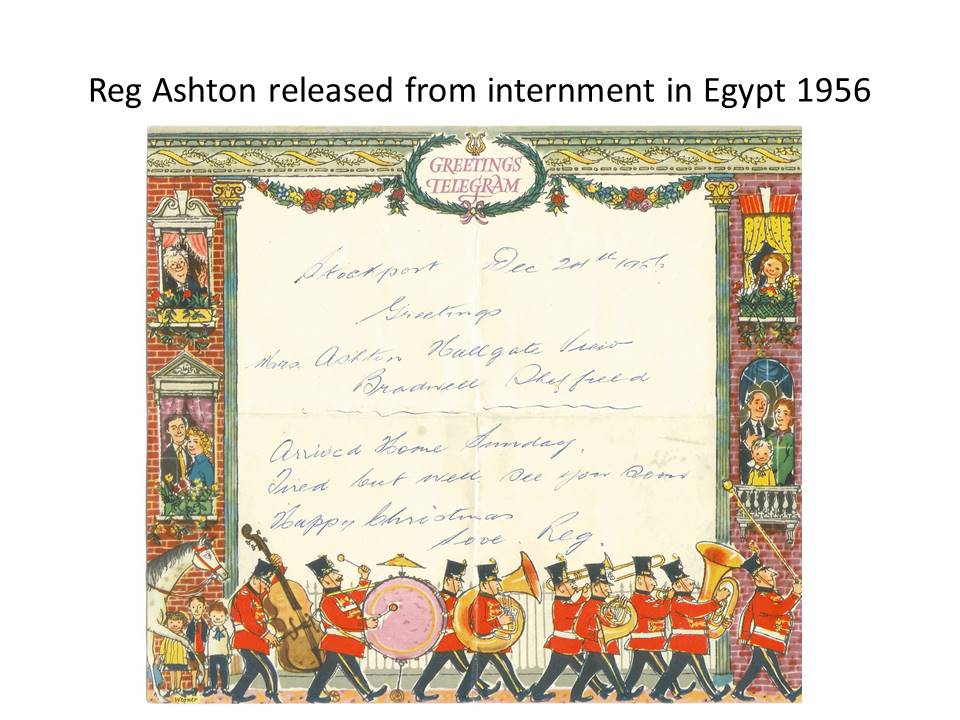 Reg Ashton released from internment in Egypt 1956
GREETINGS
TELEGRAM
Stockport Dec 24th 1956
Greetings
Mrs. Ashton Hallgate View
Bradwell Sheffield
Arrived Home Sunday.
Tired but well see you soon
Happy Christmas
Love. Reg.
Wegner